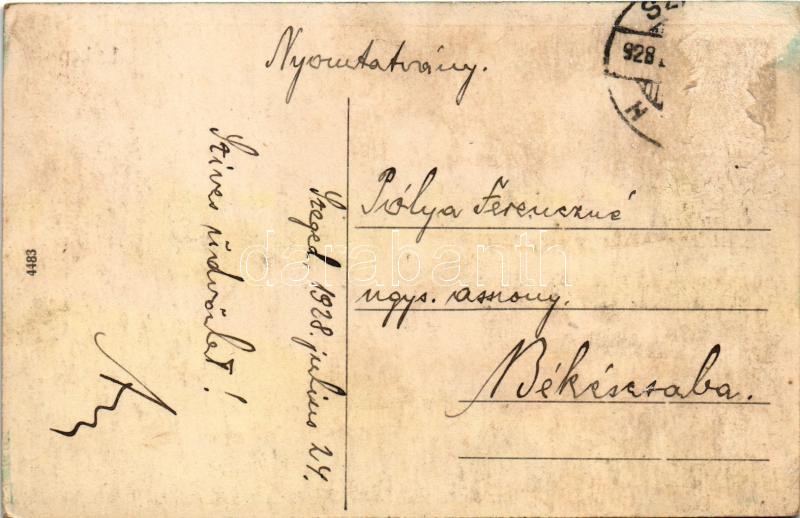 Nyomtatvány.
928
Szeged, 1928. julius 24.
Szives üdvözlet!
Pólya Ferenczné
ngys. asszony.
Békéscsaba.
4483
darabanth